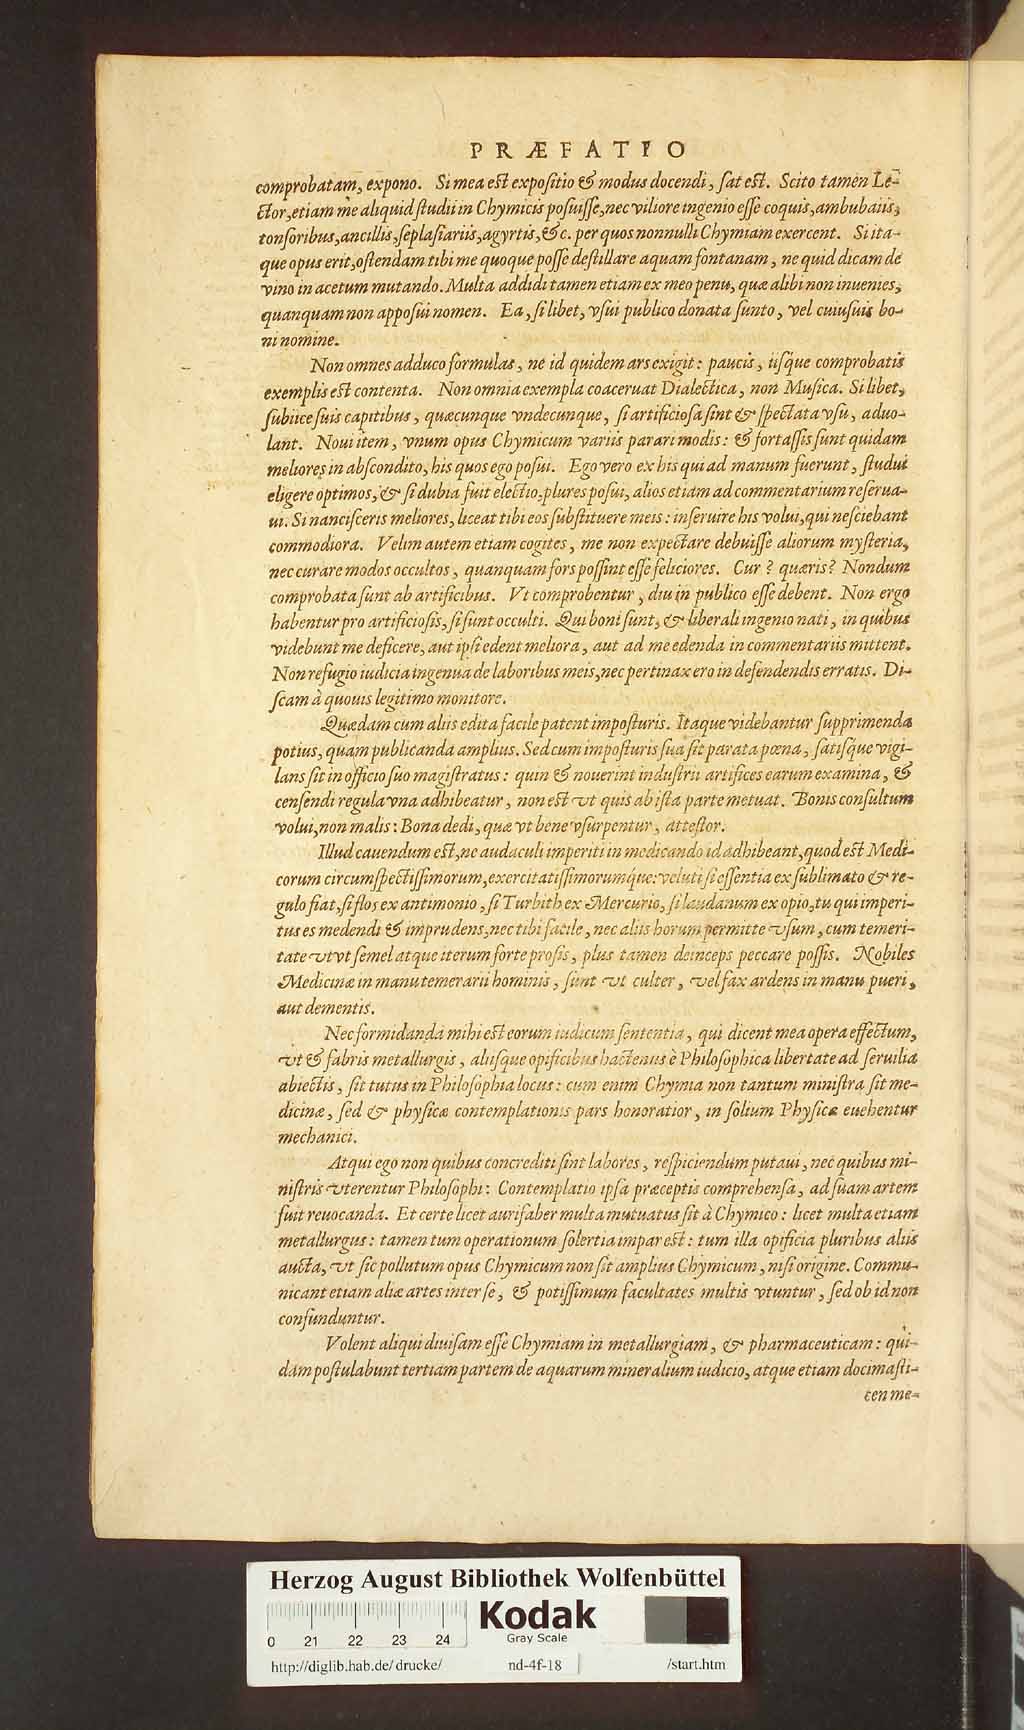 PRÆFATIO
comprobatam, expono. Si mea est expositio & modus docendi, sat est. Scito tamen Le-
ctor, etiam me aliquid studii in Chymicis posuisse, nec viliore ingenio esse coquis, ambubaiis,
tonsoribus, ancillis, seplasiariis, agyrtis, &c. per quos nonnulli Chymiam exercent. Si ita-
que opus erit, ostendam tibi me quoque posse destillare aquam fontanam, ne quid dicam de
vino in acetum mutando. Multa addidi tamen etiam ex meo penu, quæ alibi non inuenies,
quanquam non apposui nomen. Ea, si libet, vsui publico donata sunto, vel cuiusuis bo-
ni nomine.
Non omnes adduco formulas, ne id quidem ars exigit: paucis, iisque comprobatis
exemplis est contenta. Non omnia exempla coaceruat Dialectica, non Musica. Si libet,
subiice suis capitibus, quæcunque vndecunque, si artificiosa sint & spectata vsu, aduo-
lant. Noui item, vnum opus Chymicum variis parari modis: & fortassis sunt quidam
meliores in abscondito, his quos ego posui. Ego vero ex his qui ad manum fuerunt, studui
eligere optimos, & si dubia fuit electio, plures posui, alios etiam ad commentarium reserua-
ui. Si nancisceris meliores, liceat tibi eos substituere meis: inseruire his volui, qui nesciebant
commodiora. Velim autem etiam cogites, me non expectare debuisse aliorum mysteria,
nec curare modos occultos, quanquam fors possint esse feliciores. Cur? quæris? Nondum
comprobata sunt ab artificibus. Vt comprobentur, diu in publico esse debent. Non ergo
habentur pro artificiosis, si sunt occulti. Qui boni sunt, & liberali ingenio nati, in quibus
videbunt me deficere, aut ipsi edent meliora, aut ad me edenda in commentariis mittent.
Non refugio iudicia ingenua de laboribus meis, nec pertinax ero in defendendis erratis. Di-
scam à quouis legitimo monitore.
Quædam cum aliis edita facile patent imposturis. Itaque videbantur supprimenda
potius, quam publicanda amplius. Sed cum imposturis sua sit parata pœna, satisque vigi-
lans sit in officio suo magistratus: quin & nouerint industrii artifices earum examina, &
censendi regula vna adhibeatur, non est vt quis ab ista parte metuat. Bonis consultum
volui, non malis: Bona dedi, quæ vt bene vsurpentur, attestor.
Illud cauendum est, ne audaculi imperiti in medicando id adhibeant, quod est Medi-
corum circumspectissimorum, exercitatissimorumque: veluti si essentia ex sublimato & re-
gulo fiat, si flos ex antimonio, si Turbith ex Mercurio, si laudanum ex opio, tu qui imperi-
tus es medendi & imprudens, nec tibi facile, nec aliis horum permitte vsum, cum temeri-
tate vtvt semel atque iterum forte prosis, plus tamen deinceps peccare possis. Nobiles
Medicinæ in manu temerarii hominis, sunt vt culter, vel fax ardens in manu pueri,
aut dementis.
Nec formidanda mihi est eorum iudicum sententia, qui dicent mea opera effectum,
vt & fabris metallurgis, aliisque opificibus hactenus è Philosophica libertate ad seruilia
abiectis, sit tutus in Philosophia locus: cum enim Chymia non tantum ministra sit me-
dicinæ, sed & physicæ contemplationis pars honoratior, in solium Physicæ euehentur
mechanici.
Atqui ego non quibus concrediti sint labores, respiciendum putaui, nec quibus mi-
nistris vterentur Philosophi: Contemplatio ipsa præceptis comprehensa, ad suam artem
fuit reuocanda. Et certe licet aurifaber multa mutuatus sit à Chymico: licet multa etiam
metallurgus: tamen tum operationum solertia impar est: tum illa opificia pluribus aliis
aucta, vt sic pollutum opus Chymicum non sit amplius Chymicum, nisi origine. Commu-
nicant etiam aliæ artes inter se, & potissimum facultates multis vtuntur, sed ob id non
confunduntur.
Volent aliqui diuisam esse Chymiam in metallurgiam, & pharmaceuticam: qui-
dam postulabunt tertiam partem de aquarum mineralium iudicio, atque etiam docimasti-
cen me-
Herzog August Bibliothek Wolfenbüttel
Kodak
Gray Scale
0 21 22 23 24
http://diglib.hab.de/drucke/ nd-4f-18 /start.htm